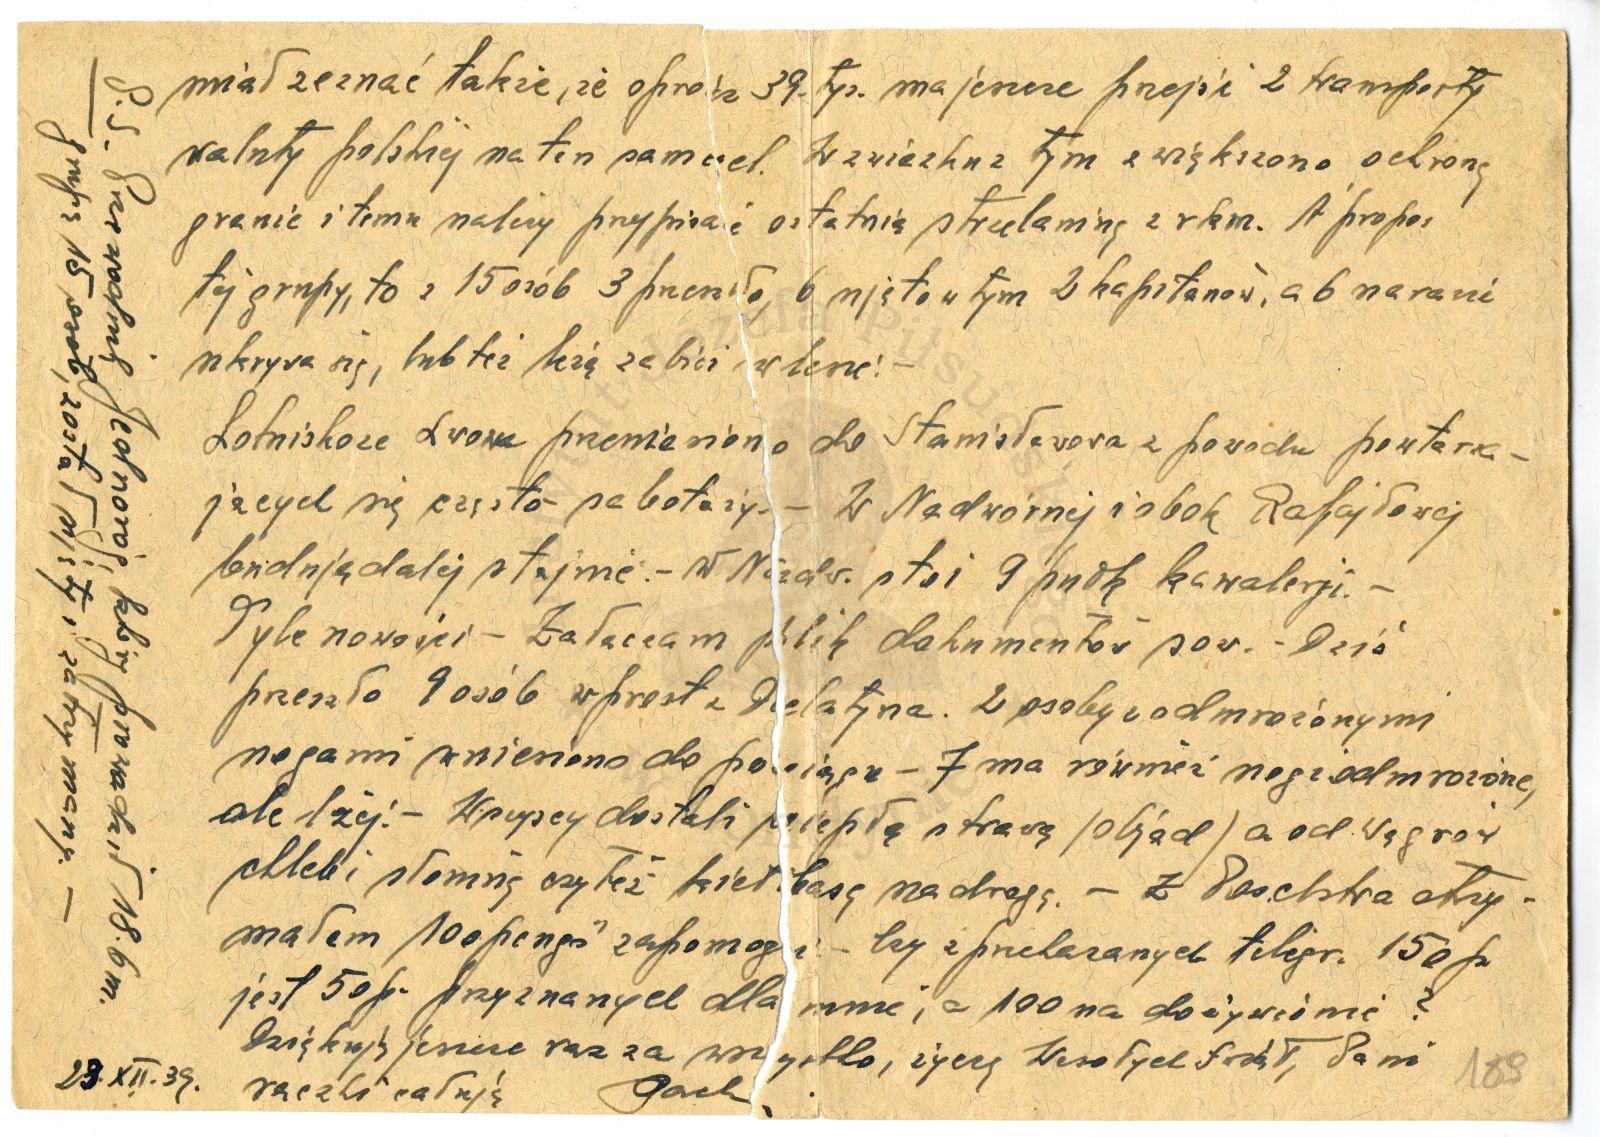 miał zeznać także, że oprócz 39. tys. ma jeszcze przejść 2 transporty
waluty polskiej na ten sam cel. W związku z tym zwiększono ochronę
granic i temu należy przypisać ostatnią strzelaninę z rkm. A propos
tej grupy, to z 15 osób 3 przeszło, 6 ujęto w tym 2 kapitanów, a 6 na razie
ukrywa się, lub też leżą zabici w lesie! -
Lotnisko ze Lwowa przeniesiono do Stanisławowa z powodu powtarza-
jących się często sabotaży. - W Nadwórnej i obok Rafajłowej
budują dalej stajnie. - W Nadw. stoi 9 pułk kawalerji. -
Tyle nowości - Załączam plik dokumentów sow. - Dziś
przeszło 9 osób wprost z Delatyna. 2 osoby z odmrożonymi
nogami wniesiono do pociągu - 7 ma również nogi odmrożone,
ale lżej! - Wszyscy dostali ciepłą strawę (objad) a od Węgrów
chleb i słoninę czy też kiełbasę na drogę. - Z Poselstwa otrzy-
małem 100 pengö zapomogi - Czy z przekazanych telegr. 150 p.
jest 50 p. przyznanych dla mnie, a 100 na dożywienie?
Dziękuję jeszcze raz za wszystko, życzę Wesołych Świąt, Pani
rączki całuję
23. XII. 39.
P.S. Przewodnik który prowadził 18. bm.
grupę 15 osób, został ujęty i zatrzymany. -
189